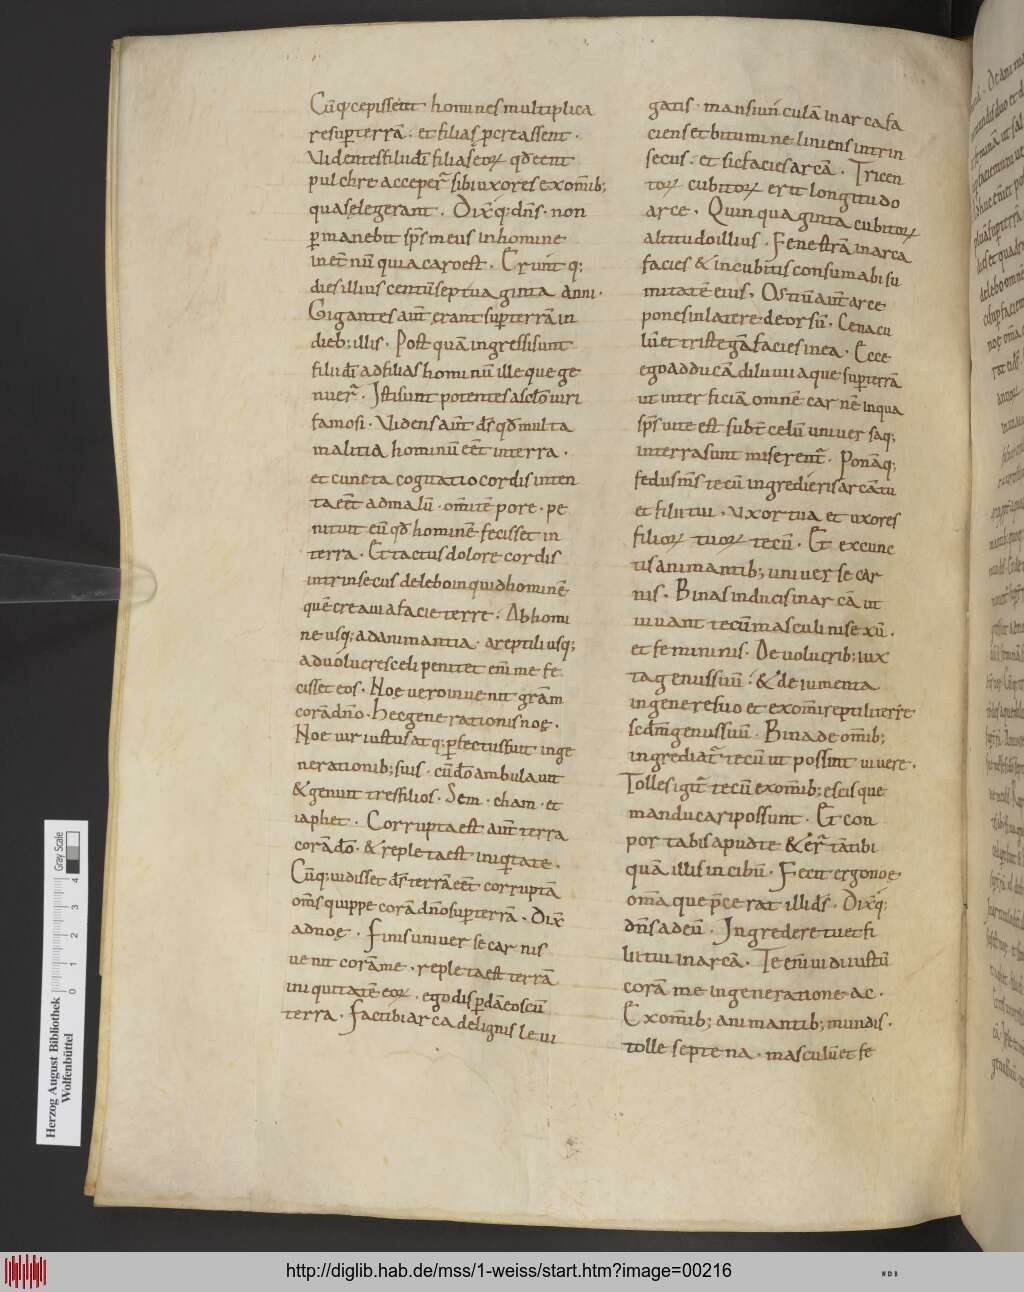 Cūq; cepissent homines multiplica
re sup terrā. et filias pcreassent.
Videntes filii dī filias eoꝝ qđ eent
pulchre acceper̄ sibi uxores ex om̄ib;
quas elegerant. Dix̄q; dn̄s. non
pmanebit sp̄s meus in homine
in et̄nū quia caro est. Erunt q;
dies illius centū septuaginta anni.
Gigantes aut̄ erant sup terrā in
dieb; illis. Post quā ingressi sunt
filii dī ad filias hominū ille que ge
nuer̄. Isti sunt potentes a sc̄lo uiri
famosi. Videns aut̄ ds̄ qđ multa
malitia hominū eet̄ in terra.
et cuncta cogitatio cordis inten
ta eet̄ ad malū. om̄i tēpore. pe
nituit eū qđ hominē fecisset in
terra. Et tactus dolore cordis
intrinsecus delebo inquid hominē
quē creaui a facie terre. Ab homi
ne usq; ad animantia. a reptili usq;
ad uolucres celi penitet em̄ me fe
cisset eos. Noe uero inuenit gram̄
corā dn̄o. Hee generationis noę.
Noe uir iustus atq; pfectus fuit in ge
nerationib; suis. cū dō ambulauit
& genuit tres filios. Sem. cham. et
iaphet. Corrupta est aut̄ terra
corā dō. & repleta est iniqtate.
Cūq; uidisset ds̄ terrā eet̄ corruptā
om̄s quippe corā dn̄o sup terrā. Dix̄
ad noę. Finis uniuerse carnis
uenit corā me. repleta est terra
iniquitatē eoꝝ. ego dispdā eos cū
terra. Fac tibi arca de lignis leui
gatis. mansiunculā in arca fa
ciens et bitumine liniens intrin
secus. et sic facies arcā. Tricen
toꝝ cubitoꝝ erit longitudo
arce. Quinquaginta cubitoꝝ
altitudo illius. Fenestrā in arca
facies & in cubitis consumabi su
mitatē eius. Ostiū aut̄ arce
pones in latere deorsū. Cenacu
lū et tristegā facies in ea. Ecce
ego adducā diluuii aque sup terrā
ut interficiā omnē carnē in qua
sp̄s uite est subt̄ celū uniuersaq;
in terra sunt miserent̄. Ponāq;
fedus m̄s tecū ingredieris arcā tu
et filii tui. uxor tua et uxores
filioꝝ tuoꝝ tecū. Et ex cunc
tis animantib; uniuerse car
nis. Binas induces in arcā ut
uiuant tecū masculini sexū.
et femininis. De uolucrib; iux
ta genus suū. & de iumenta
in genere suo et ex om̄i reptili terre
scdm̄ genus suū. Bina de om̄ib;
ingrediat̄ tecū ut possint uiuere.
Tolles igit̄ tecū ex om̄ib; escis que
manducari possunt. Et con
portabis apud te & er̄ tā tibi
quā illis in cibū. Fecit ergo noe
om̄a que p̄ceperat illi ds̄. Dix̄q;
dn̄s ad eū. Ingredere tu et fi
lii tui in arcā. Te em̄ uidi iustū
corā me in generatione ac.
Ex om̄ib; animantib; mundis.
tolle septena. masculū et fe
Herzog August Bibliothek
Wolfenbüttel
Gray Scale
0 1 2 3 4
http://diglib.hab.de/mss/1-weiss/start.htm?image=00216